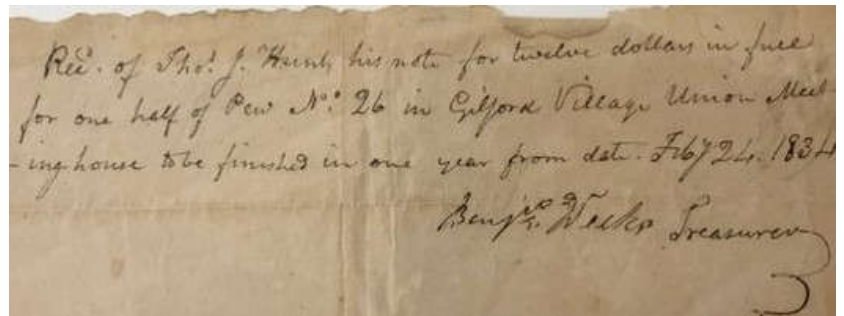 Rec.d of Tho.s J. Hunt his note for twelve dollars in full
for one half of Pew No. 26 in Gilford Village Union Meet-
-ing house to be finished in one year from date. Feby 24. 1834
Benja. Weeks Treasurer